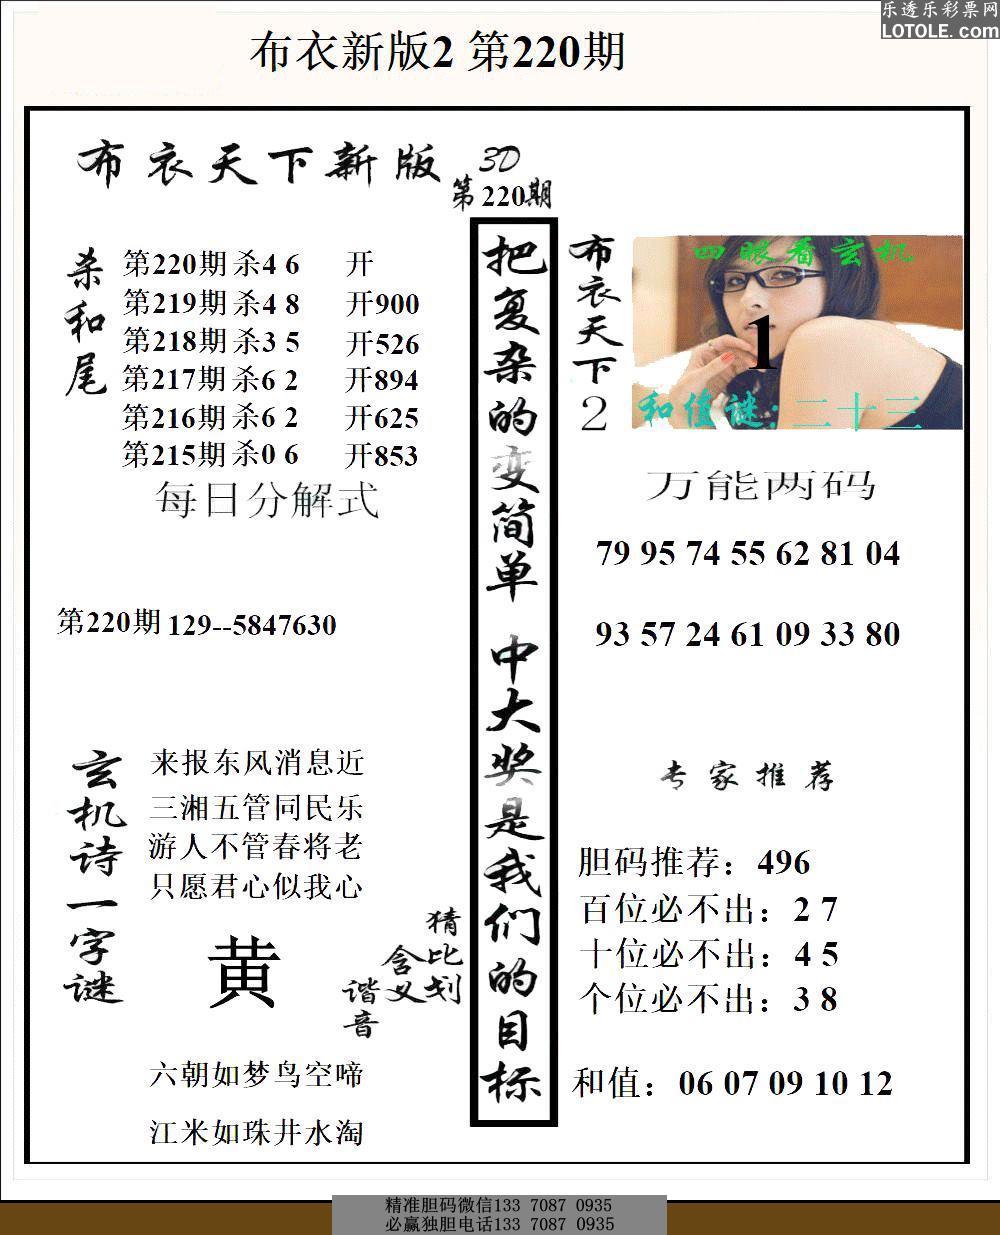 乐透乐彩票网
LOTOLE.com
布衣新版2 第220期
布衣天下新版 3D
第220期
杀和尾
第220期 杀4 6 开
第219期 杀4 8 开900
第218期 杀3 5 开526
第217期 杀6 2 开894
第216期 杀6 2 开625
第215期 杀0 6 开853
每日分解式
第220期 129--5847630
玄机诗一字谜
来报东风消息近
三湘五管同民乐
游人不管春将老
只愿君心似我心
黄
猜比划
含义
谐音
六朝如梦鸟空啼
江米如珠井水淘
把复杂的变简单 中大奖是我们的目标
布衣天下2
四眼看玄机
1
和值谜:二十三
万能两码
79 95 74 55 62 81 04
93 57 24 61 09 33 80
专家推荐
胆码推荐：496
百位必不出：2 7
十位必不出：4 5
个位必不出：3 8
和值：06 07 09 10 12
精准胆码微信133 7087 0935
必赢独胆电话133 7087 0935